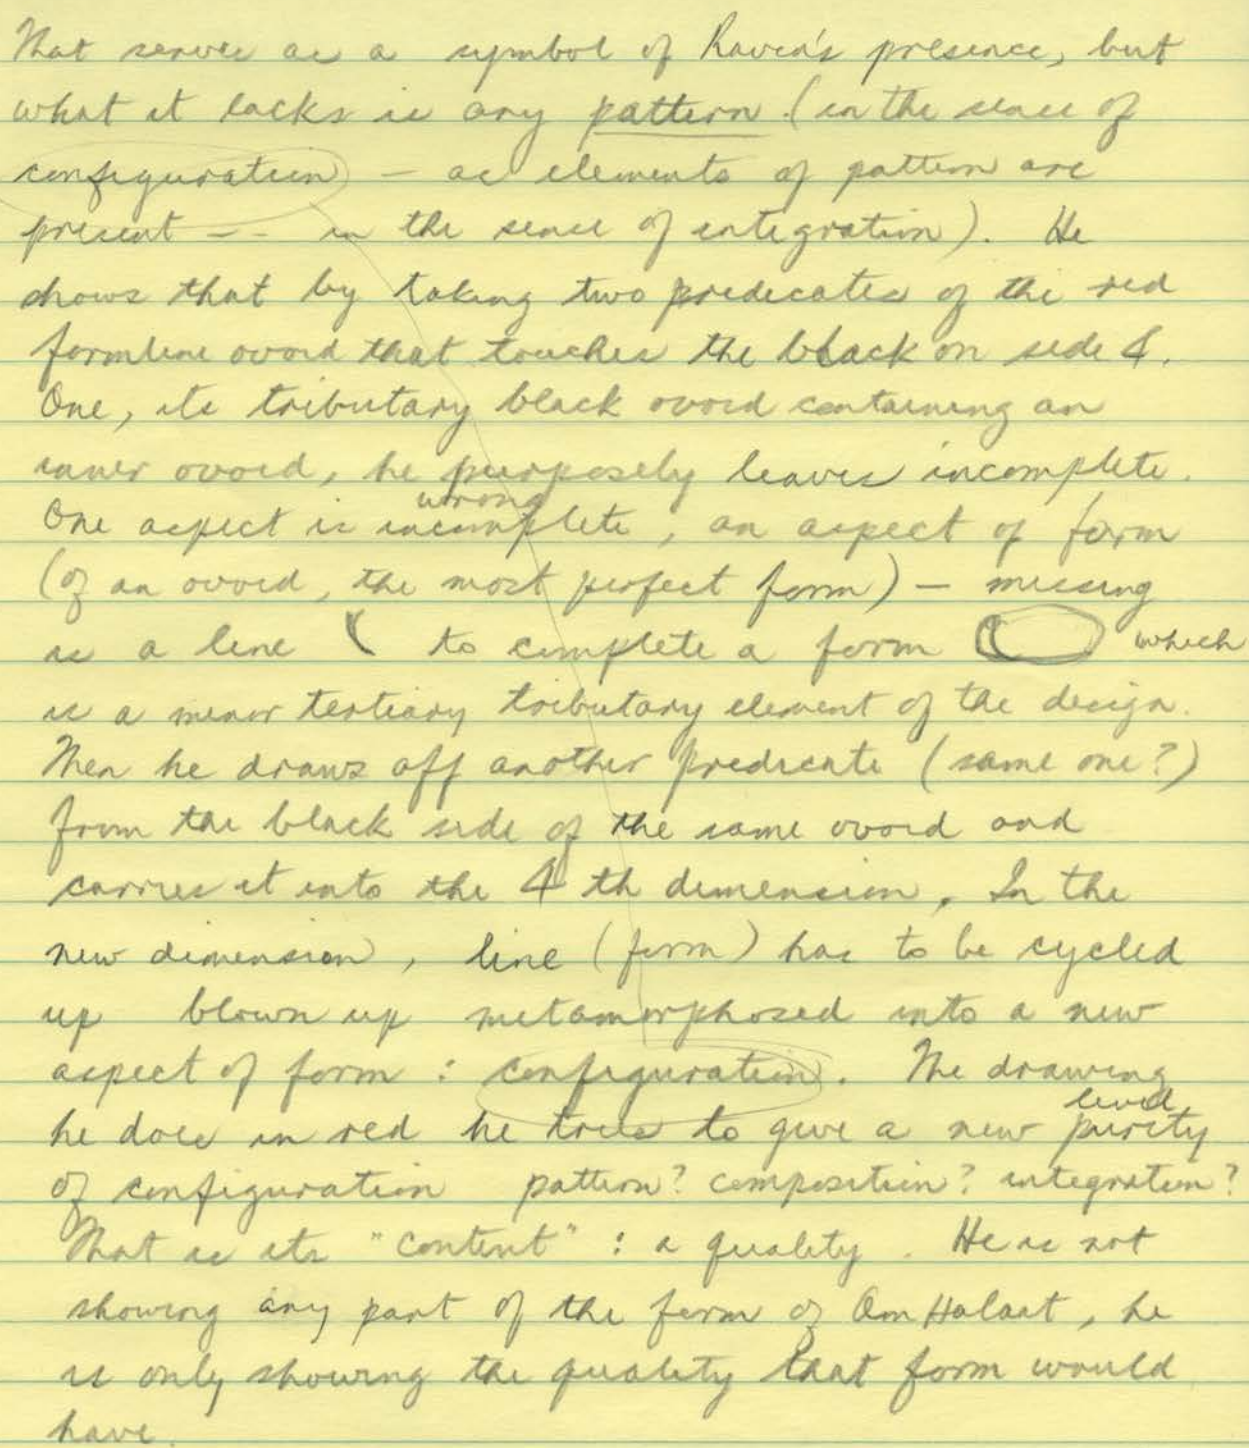 That serves as a symbol of Raven's presence, but
what it lacks is any pattern (in the sense of
configuration) - as elements of pattern are
present -- in the sense of integration). He
shows that by taking two predicates of the red
formline ovoid that touches the black on side 4.
One, its tributary black ovoid containing an
inner ovoid, he purposely leaves incomplete.
wrong
One aspect is incomplete, an aspect of form
(of an ovoid, the most perfect form) - missing
is a line ( to complete a form which
is a minor tertiary tributary element of the design.
Then he draws off another predicate (same one?)
from the black side of the same ovoid and
carries it into the 4th dimension. In the
new dimension, line (form) has to be cycled
up blown up metamorphosed into a new
aspect of form : configuration. The drawing
level
he does in red he tries to give a new purity
of configuration pattern? composition? integration?
That is its "content" : a quality. He is not
showing any part of the form of Om Halaat, he
is only showing the quality that form would
have.